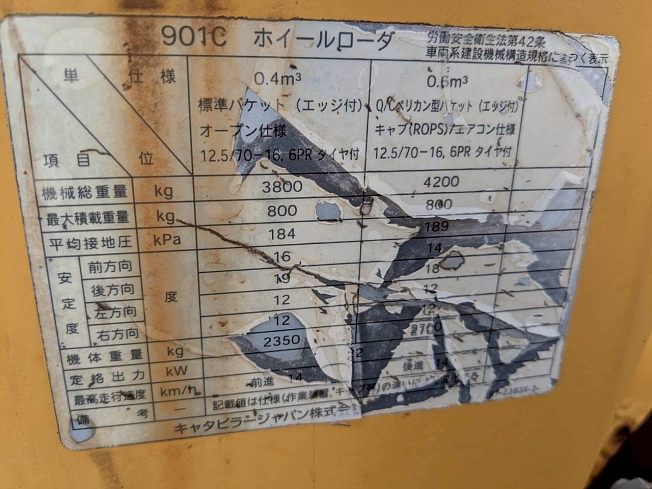 901C ホイールローダ
労働安全衛生法第42条
車両系建設機械構造規格に づく表示
単位 仕様 項目
0.4m³
標準バケット（エッジ付）
オープン仕様
12.5/70－16, 6PR タイヤ付
0.6m³
Q/Cペリカン型バケット（エッジ付）
キャブ(ROPS)/エアコン仕様
12.5/70－16, 6PR タイヤ付
機械総重量 kg 3800 4200
最大積載重量 kg 800 800
平均接地圧 kPa 184 189
安定度 度
前方向 16 14
後方向 19 18
左方向 12 12
右方向 12
機体重量 kg 2350 2700
定格出力 kW 22
最高走行速度 km/h 前進 14 後進 14
備考 － 記載値は仕様（作業装置、キャブ
キャタピラージャパン株式会